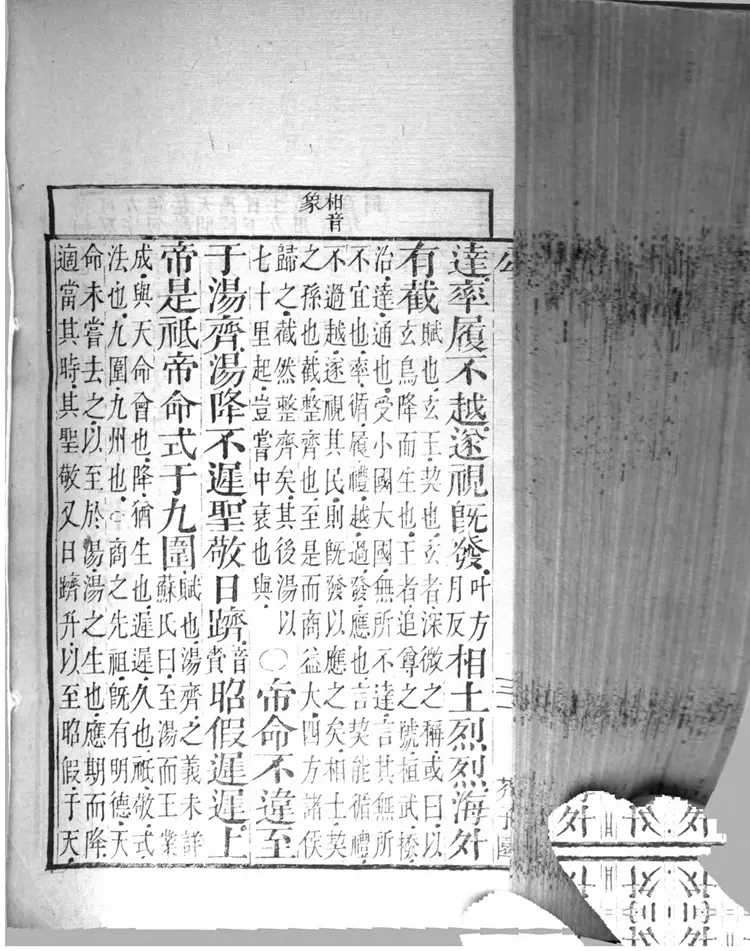 相音
象
達率履不越遂視既發叶方月反相土烈烈海外
有截賦也玄王契也玄者深微之稱或曰以
玄鳥降而生也王者追尊之號桓武撥
治達通也受小國大國無所不達言其無所
不宜也率循履禮越過發應也言契能循禮
不過越遂視其民則既發以應之矣相土契
之孫也截整齊也至是而商益大四方諸侯
歸之截然整齊矣其後湯以
七十里起豈嘗中衰也與〇帝命不違至
于湯齊湯降不遲聖敬日躋音賫昭假遲遲上
帝是祗帝命式于九圍賦也湯齊之義未詳
蘇氏曰至湯而王業
成與天命會也降猶生也遲遲久也祗敬式
法也九圍九州也○商之先祖既有明德天
命未嘗去之以至於湯湯之生也應期而降
適當其時其聖敬又日躋升以至昭假于天
芥子園